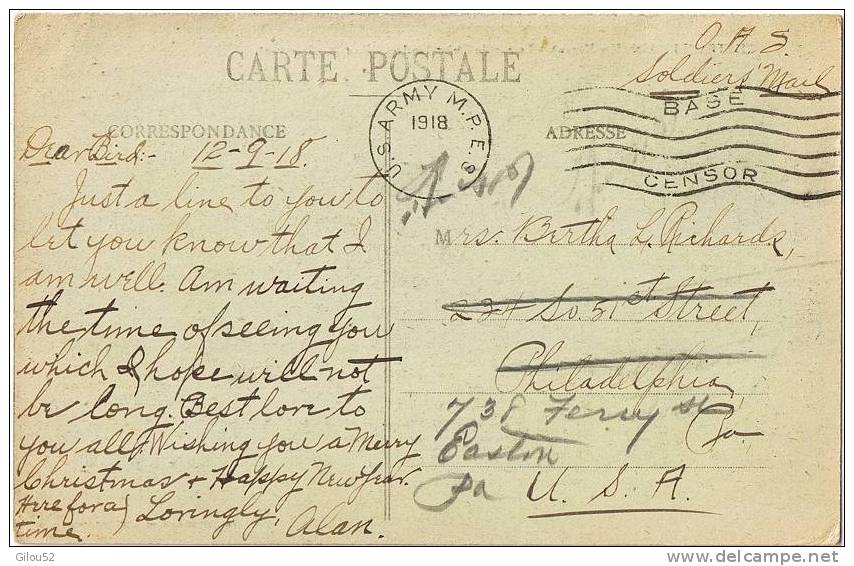 O. A. S.
Soldiers' Mail
CARTE POSTALE
U.S. ARMY M.P.E.S.
1918
BASE
CENSOR
CORRESPONDANCE
ADRESSE
Dear Bird:- 12-9-18.
Just a line to you to
let you know that I
am well. Am waiting
the time of seeing you
which I hope will not
be long. Best love to
you all. Wishing you a Merry
Christmas + Happy New Year.
Here for a time.) Lovingly, Alan.
Mrs. Bertha L. Richards,
234 So. 51st Street,
Philadelphia,
Pa
738 Ferry St
Easton
Pa
U. S. A.
Gilou52
delcampe.net